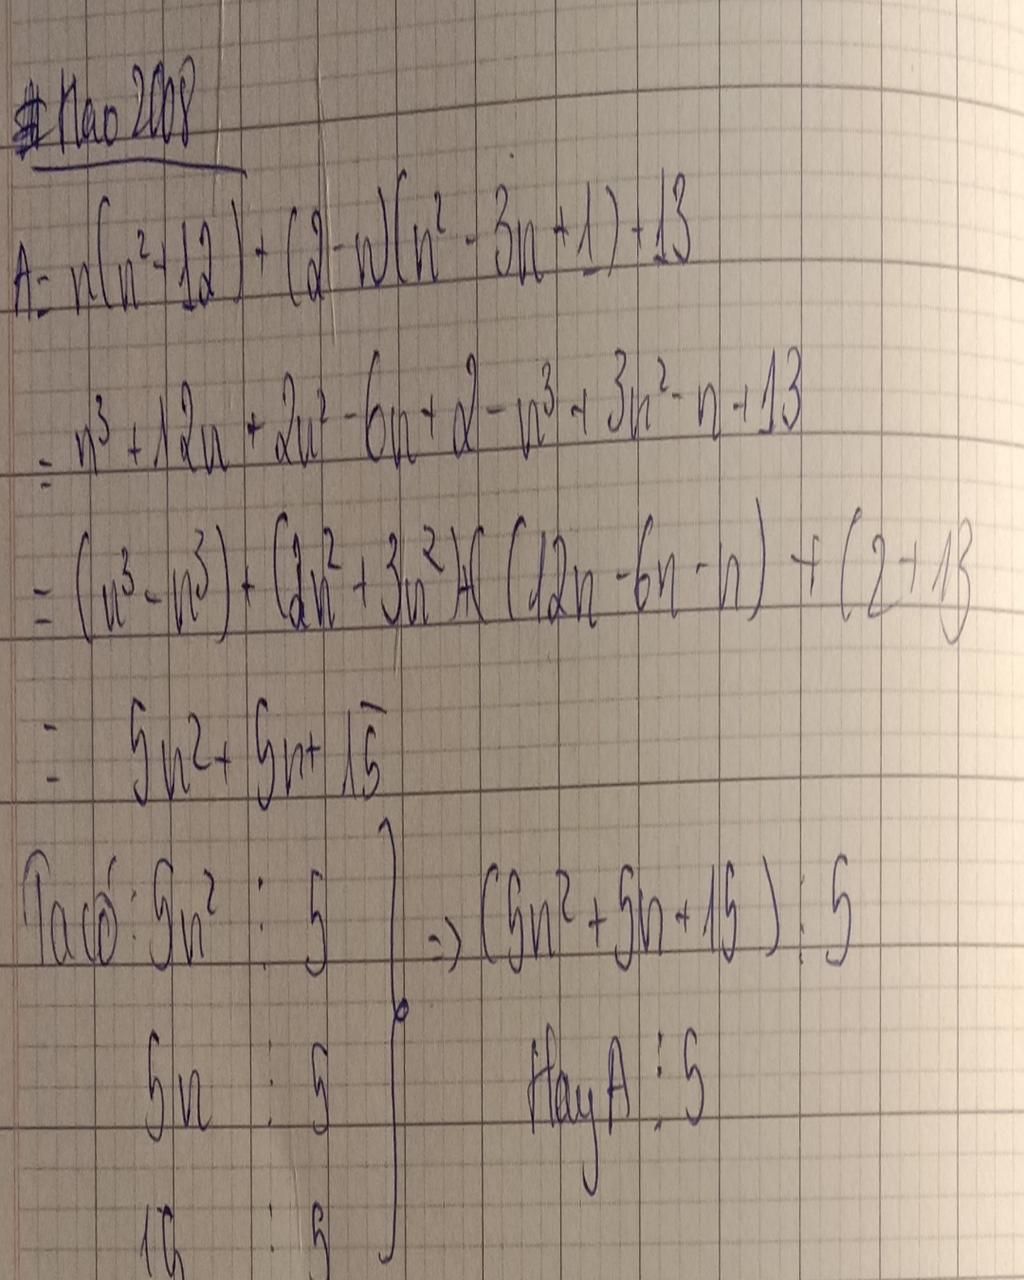 #Hao2008
A = n(n² + 12) + (2 - n)(n² - 3n + 1) + 13
= n³ + 12n + 2n² - 6n + 2 - n³ + 3n² - n + 13
= (n³ - n³) + (2n² + 3n²) + (12n - 6n - n) + (2 + 13
= 5n² + 5n + 15
Ta có: 5n² ⋮ 5 } => (5n² + 5n + 15) ⋮ 5
5n ⋮ 5 Hay A ⋮ 5
15 ⋮ 5